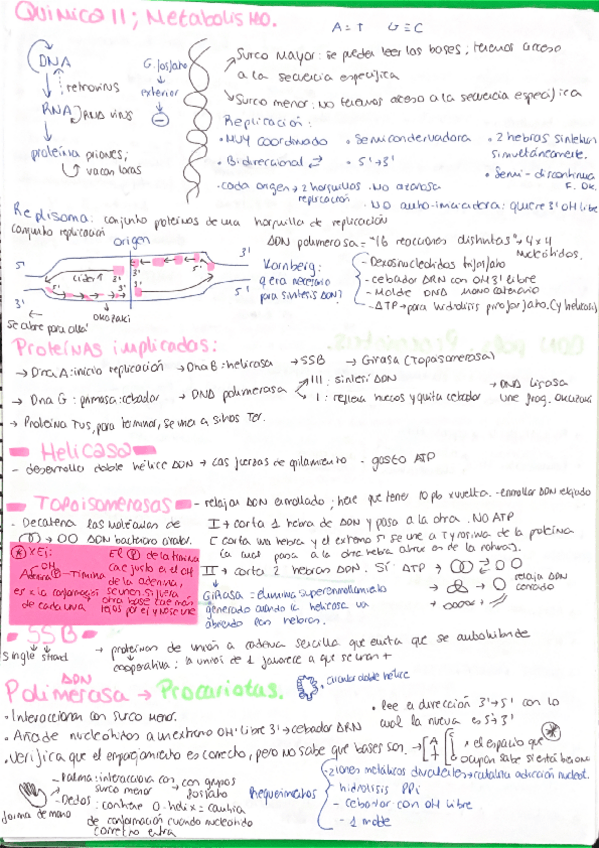 Química II; Metabolismo.
A=T G≡C
DNA
retrovirus
RNA RNA virus
proteína priones;
vacas locas
G. fosfato
exterior
Surco Mayor: se pueden leer las bases; tenemos acceso
a la secuencia específica
Surco menor: NO tenemos acceso a la secuencia específica
Replicación:
• MUY coordinado • Semiconservadora • 2 hebras sintetizan
simultáneamente.
• Bidireccional ⇄ • 5'→3' • Semi-discontinua
F. OK.
• cada origen → 2 horquillas replicación
• NO auto-iniciadora: quiere 3' OH libre
Replisoma: conjunto proteínas de una horquilla de replicación
conjunto replicación
origen
5' 3'
líder
3' 5'
okazaki
se abre para allá
ADN polimerasa = "16 reacciones distintas" → 4x4
nucleótidos.
Kornberg:
q era necesario
para síntesis ADN?
- Desoxinucleótidos trifosfato
- cebador ARN con OH 3' libre
- Molde DNA monocatenario
- ATP → para hidrólisis pirofosfato. (y helicasa)
Proteínas implicadas:
→ DnaA: inicio replicación → DnaB: helicasa → SSB → Girasa (topoisomerasa)
→ Dna G: primasa: cebador → DNA polimerasa III: síntesis ADN
I: rellena huecos y quita cebador
→ DNA ligasa
une frag. okazaki
→ Proteína Tus, para terminar, se une a sitios Ter.
Helicasa
- desenrolla doble hélice ADN → las fuerzas de apilamiento - gasto ATP
Topoisomerasas - relajar ADN enrollado; tiene que tener 10 pb x vuelta. - enrollar ADN relajado
- Decatena las moléculas de
ADN bacteriano circular.
I → corta 1 hebra de ADN y pasa a la otra. NO ATP
corta una hebra y el extremo 5' se une a Tyrosina de la proteína
II → corta 2 hebras ADN. SÍ ATP →
Girasa = elimina superenrollamiento
generado cuando la helicasa va
abriendo las hebras.
relaja ADN
cerrado
Ej:
El P de la timina
cae justo en el OH
de la adenina,
Adenina - Timina
de cada una
SSB
Single strand
→ proteínas de unión a cadena sencilla que evita que se autohibride
cooperativa: la unión de 1 favorece a que se unan +
ADN
Polimerasa → Procariotas.
circular doble hélice
• Interacciona con surco menor.
• Añade nucleótidos a un extremo OH' libre 3' → cebador ARN
• Lee en dirección 3'→5' con lo
cual la nueva es 5'→3'
• Verifica que el emparejamiento es correcto, pero no sabe que bases son.
el espacio que
ocupan sabe si está bien
- Palma: interacciona con surco menor con grupos
fosfato
- Dedos: contiene O-helix = cambia
de conformación cuando nucleótido
correcto entra
forma de mano
Requerimientos
- 2 iones metálicos divalentes → cataliza adición nucleot.
- hidrólisis PPi
- cebador con OH libre
- 1 molde